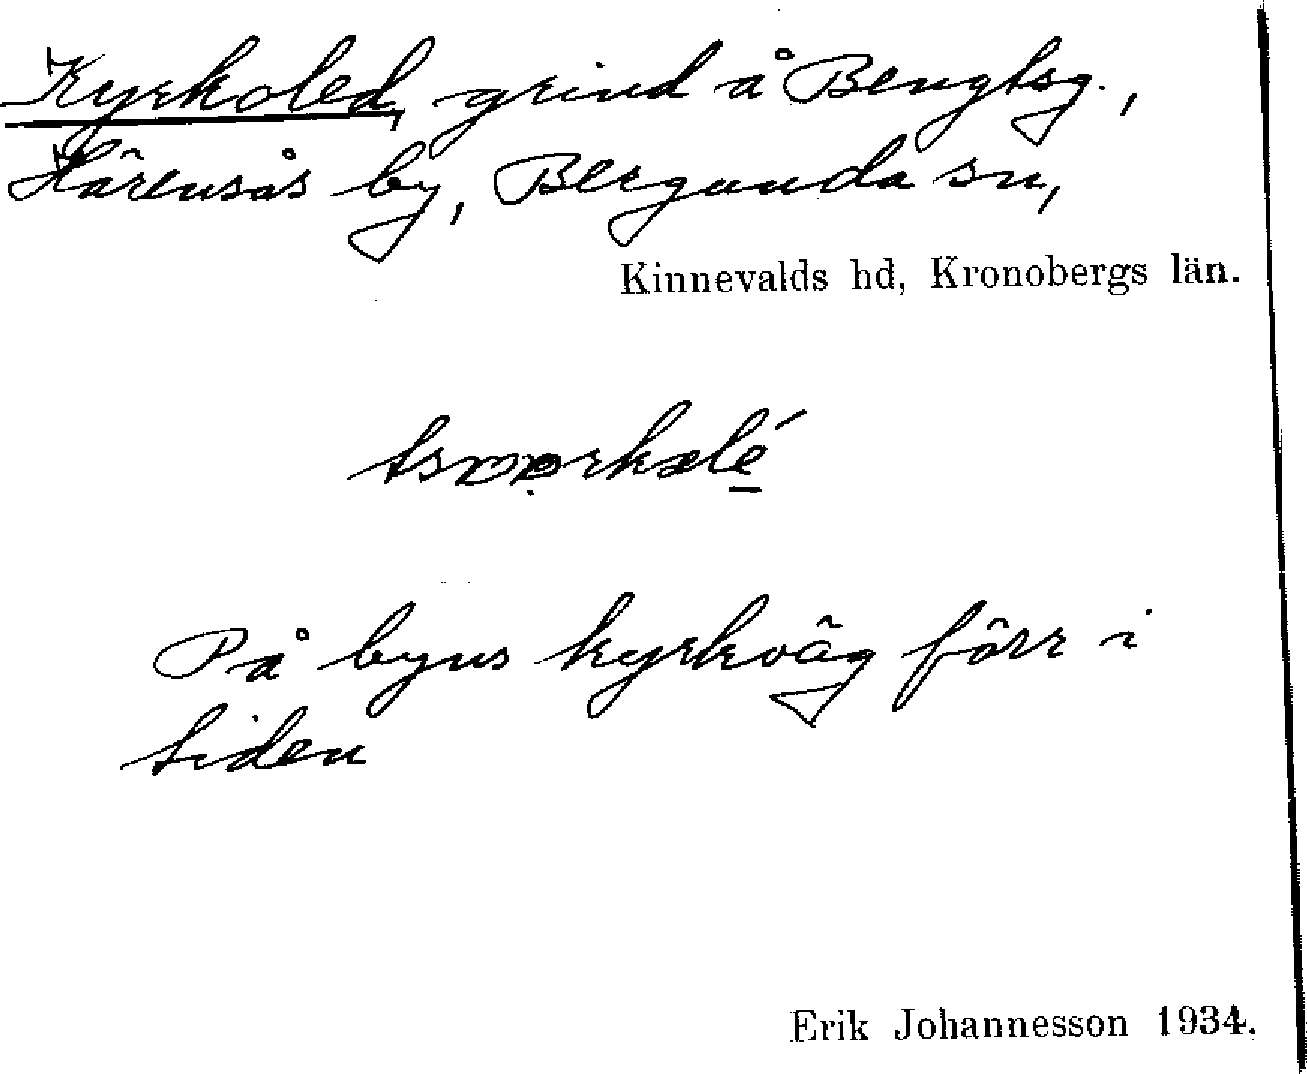 Kyrkoled, grind å Bengtsg.,
Härensås by, Bergunda sn,
Kinnevalds hd, Kronobergs län.
På byns kyrkväg förr i
tiden
Erik Johannesson 1934.